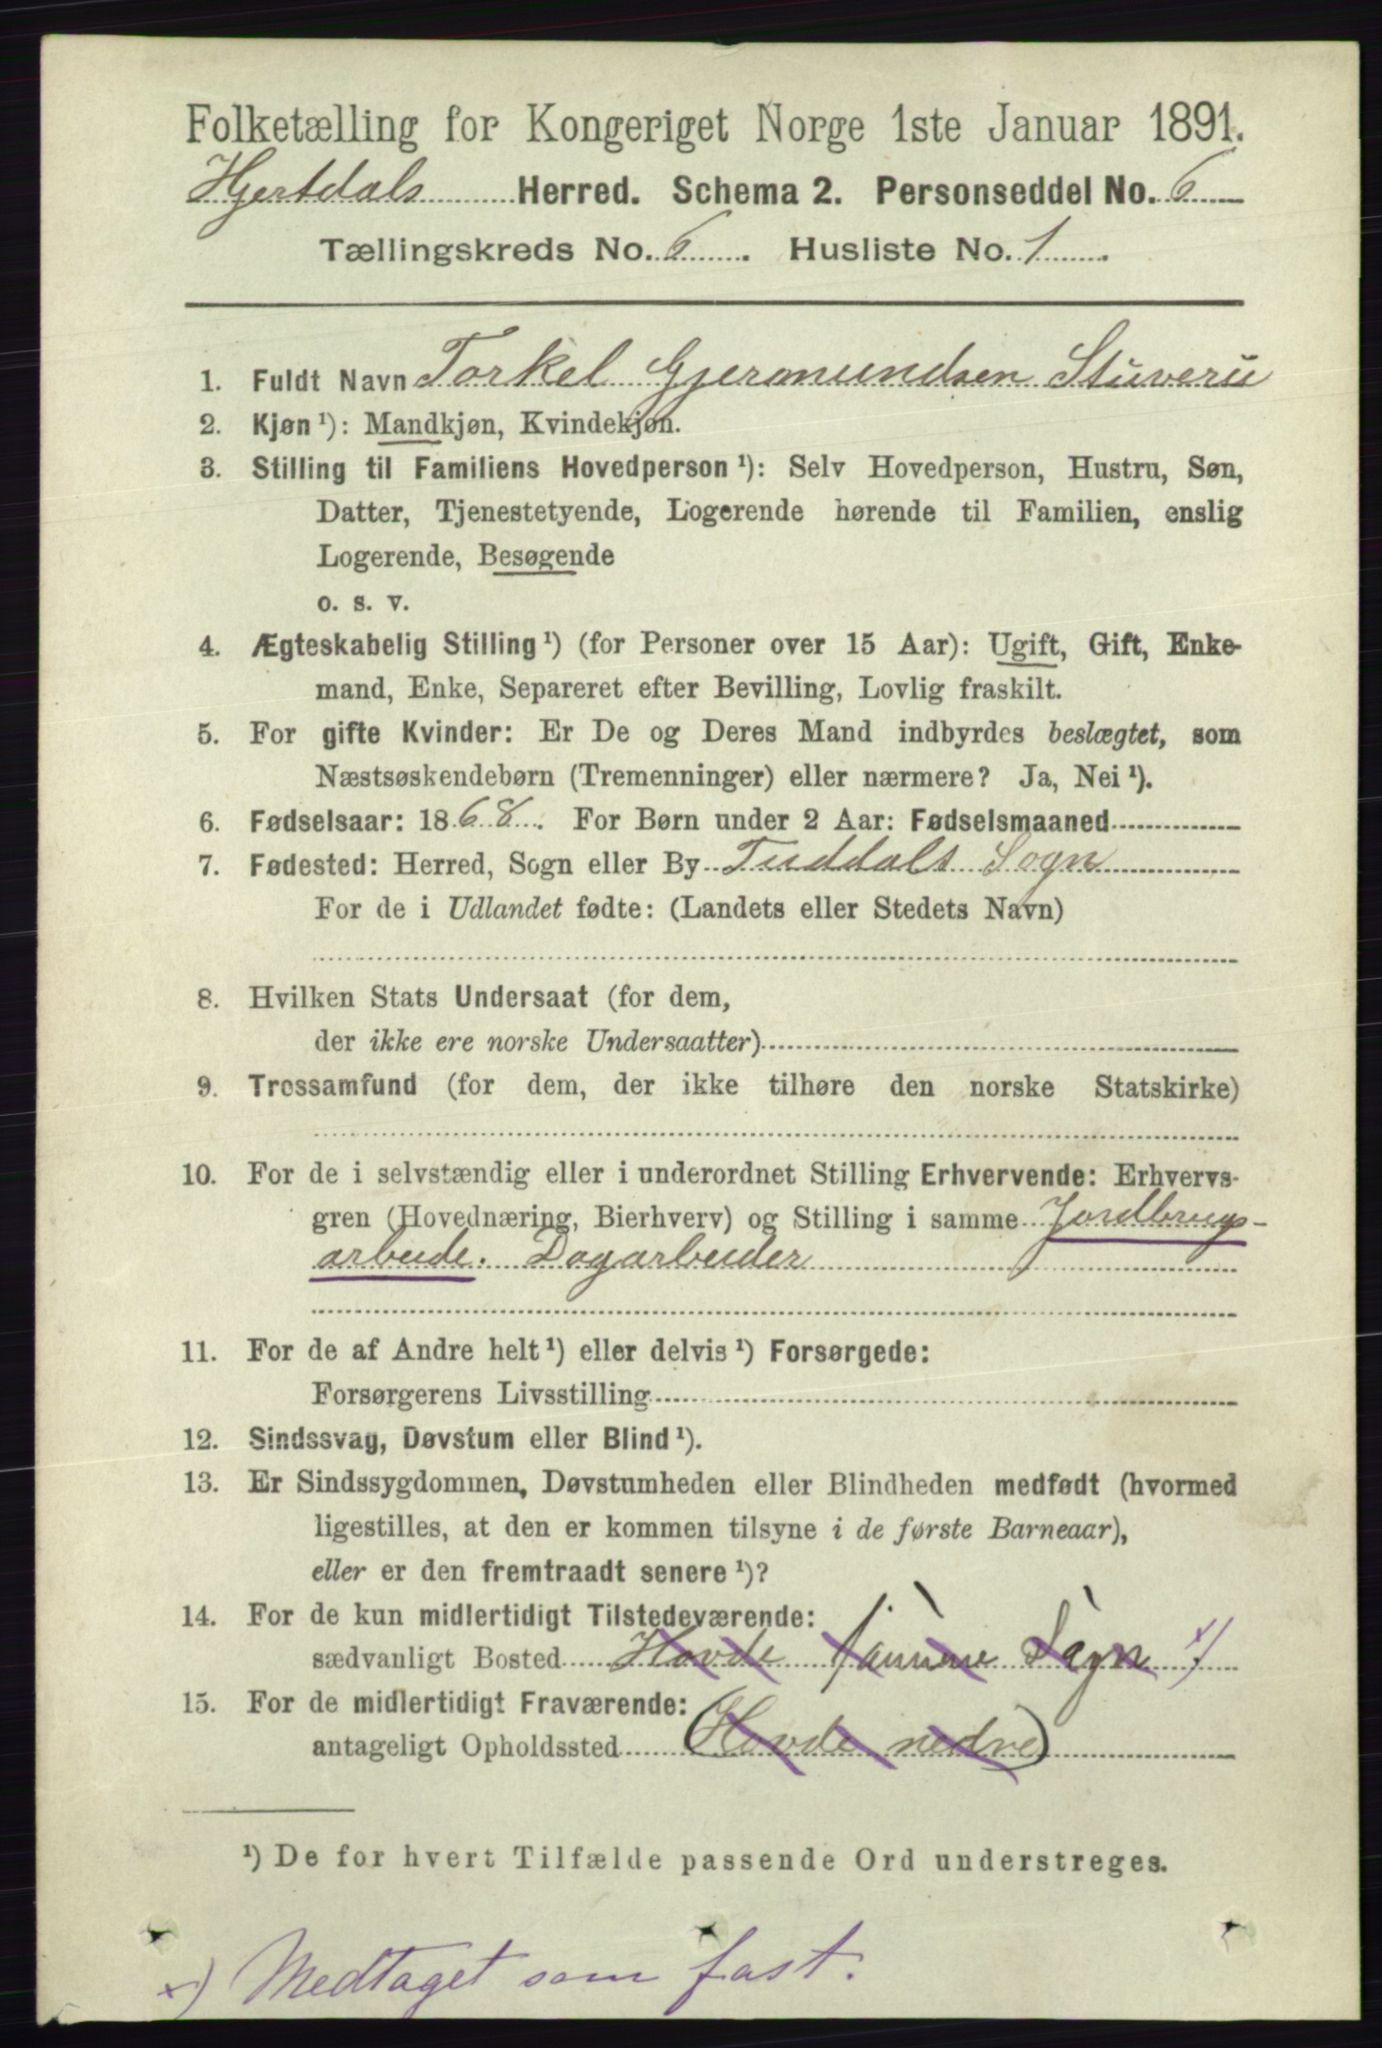 Folketælling for Kongeriget Norge 1ste Januar 1891.
Hjertdals Herred. Schema 2. Personseddel No. 6
Tællingskreds No. 6. Husliste No. 1.
1. Fuldt Navn Torkel Gjermundsen Stuverü
2. Kjøn ¹): Mandkjøn, Kvindekjøn.
3. Stilling til Familiens Hovedperson ¹): Selv Hovedperson, Hustru, Søn,
Datter, Tjenestetyende, Logerende hørende til Familien, enslig
Logerende, Besøgende
o. s. v.
4. Ægteskabelig Stilling ¹) (for Personer over 15 Aar): Ugift, Gift, Enke-
mand, Enke, Separeret efter Bevilling, Lovlig fraskilt.
5. For gifte Kvinder: Er De og Deres Mand indbyrdes beslægtet, som
Næstsøskendebørn (Tremenninger) eller nærmere? Ja, Nei ¹).
6. Fødselsaar: 1868. For Børn under 2 Aar: Fødselsmaaned
7. Fødested: Herred, Sogn eller By Tuddals Sogn
For de i Udlandet fødte: (Landets eller Stedets Navn)
8. Hvilken Stats Undersaat (for dem,
der ikke ere norske Undersaatter)
9. Trossamfund (for dem, der ikke tilhøre den norske Statskirke)
10. For de i selvstændig eller i underordnet Stilling Erhvervende: Erhvervs-
gren (Hovednæring, Bierhverv) og Stilling i samme Jordbrugs-
arbeide. Dagarbeider
11. For de af Andre helt ¹) eller delvis ¹) Forsørgede:
Forsørgerens Livsstilling
12. Sindssvag, Døvstum eller Blind ¹).
13. Er Sindssygdommen, Døvstumheden eller Blindheden medfødt (hvormed
ligestilles, at den er kommen tilsyne i de første Barneaar),
eller er den fremtraadt senere ¹)?
14. For de kun midlertidigt Tilstedeværende:
sædvanligt Bosted Hovde samme Sogn. x)
15. For de midlertidigt Fraværende:
antageligt Opholdssted (Hovde nedre)
¹) De for hvert Tilfælde passende Ord understreges.
x) Medtaget som fast.